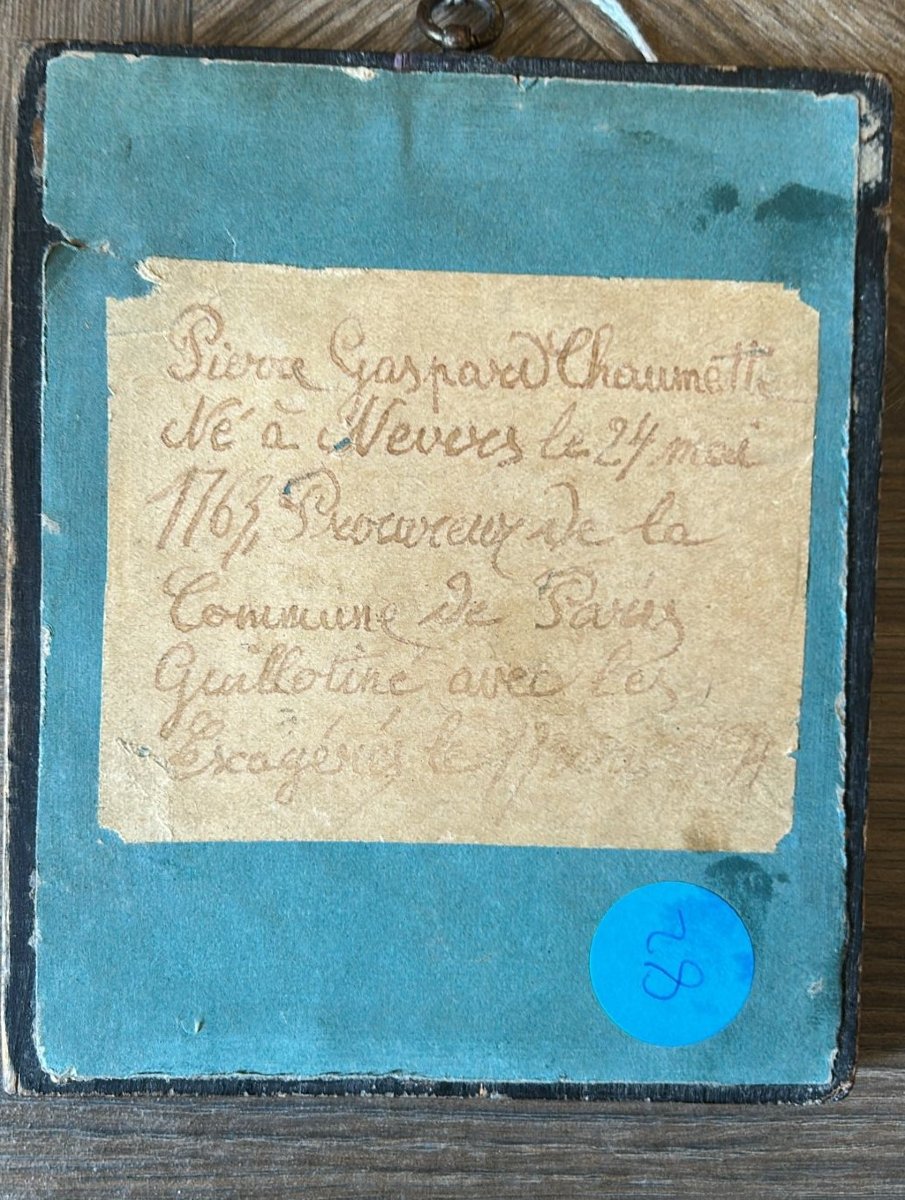 Pierre Gaspard Chaumette
Né à Nevers le 24 mai
1763 Procureur de la
Commune de Paris
Guillotiné avec les
Exagérés le
82